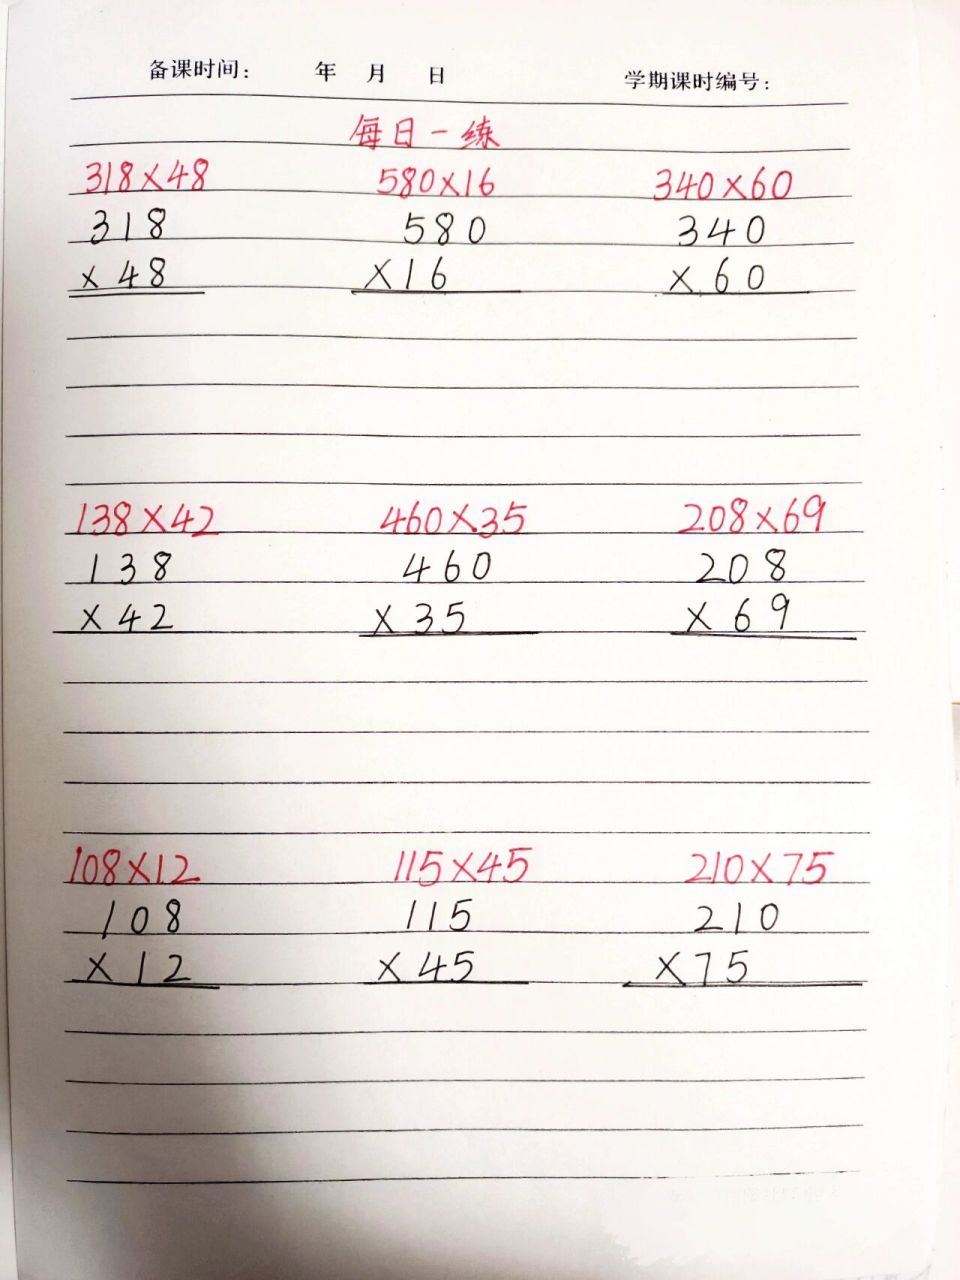 备课时间： 年 月 日 学期课时编号：
每日一练
318×48 580×16 340×60
318 580 340
×48 ×16 ×60
138×42 460×35 208×69
138 460 208
×42 ×35 ×69
108×12 115×45 210×75
108 115 210
×12 ×45 ×75